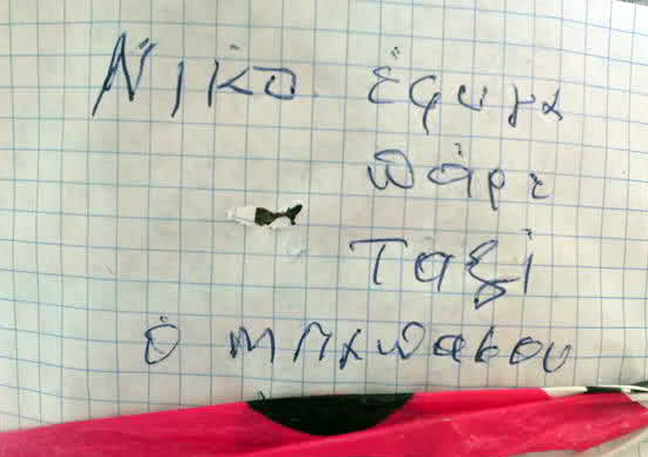 Νίκο έφυγα
πάρε
Ταξί
ό μπαμπάσου